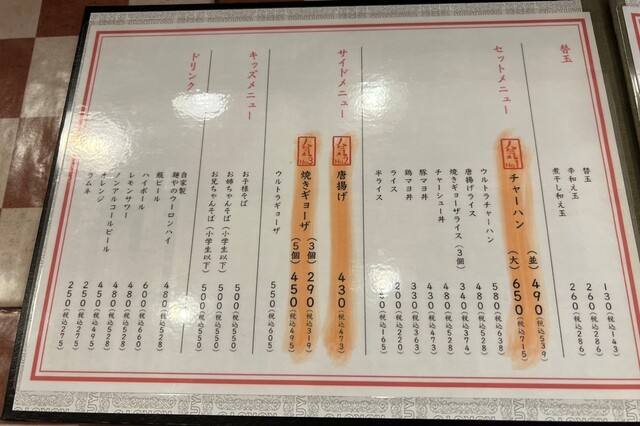 替玉
替玉 130(税込143)
辛和え玉 260(税込286)
煮干し和え玉 260(税込286)
セットメニュー
人気No.1 チャーハン (並) 490(税込539)
(大) 650(税込715)
ウルトラチャーハン 580(税込638)
唐揚げライス 480(税込528)
焼きギョーザライス(3個) 340(税込374)
チャーシュー丼 480(税込528)
豚マヨ丼 430(税込473)
鶏マヨ丼 330(税込363)
ライス 200(税込220)
半ライス 150(税込165)
サイドメニュー
人気No.2 唐揚げ 430(税込473)
人気No.3 焼きギョーザ (3個) 290(税込319)
(5個) 450(税込495)
ウルトラギョーザ 550(税込605)
キッズメニュー
お子様そば 500(税込550)
お姉ちゃんそば(小学生以下) 500(税込550)
お兄ちゃんそば(小学生以下) 500(税込550)
ドリンク
自家製
麺やのウーロンハイ 480(税込528)
瓶ビール 600(税込660)
ハイボール 480(税込528)
レモンサワー 480(税込528)
ノンアルコールビール 450(税込495)
オレンジ 250(税込275)
ラムネ 250(税込275)